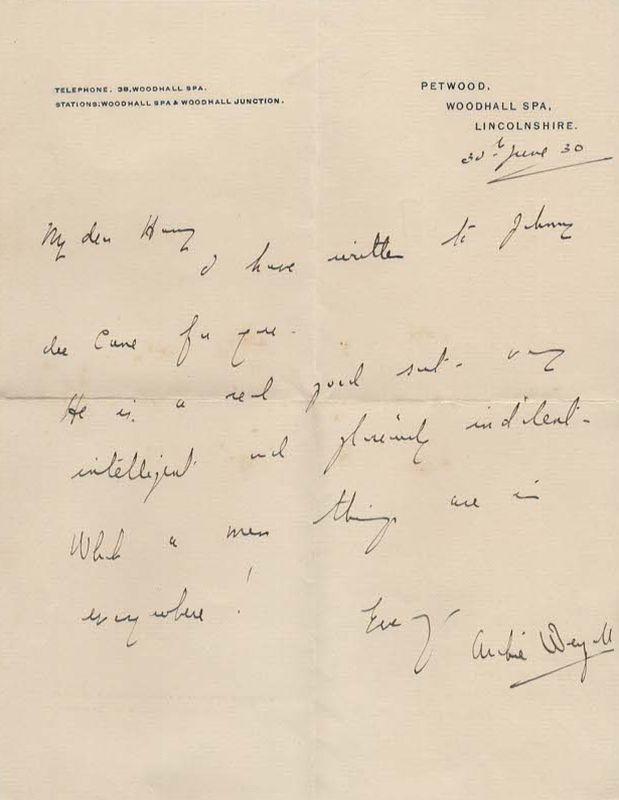 TELEPHONE. 38, WOODHALL SPA.
STATIONS: WOODHALL SPA & WOODHALL JUNCTION.
PETWOOD,
WOODHALL SPA,
LINCOLNSHIRE.
30th June 30
My dear Harry
I have written to Johnny
du Cane for you.
He is a real good sort - very
intelligent and indolent -
What a mess things are in
everywhere!
Ever
Archie Weigall